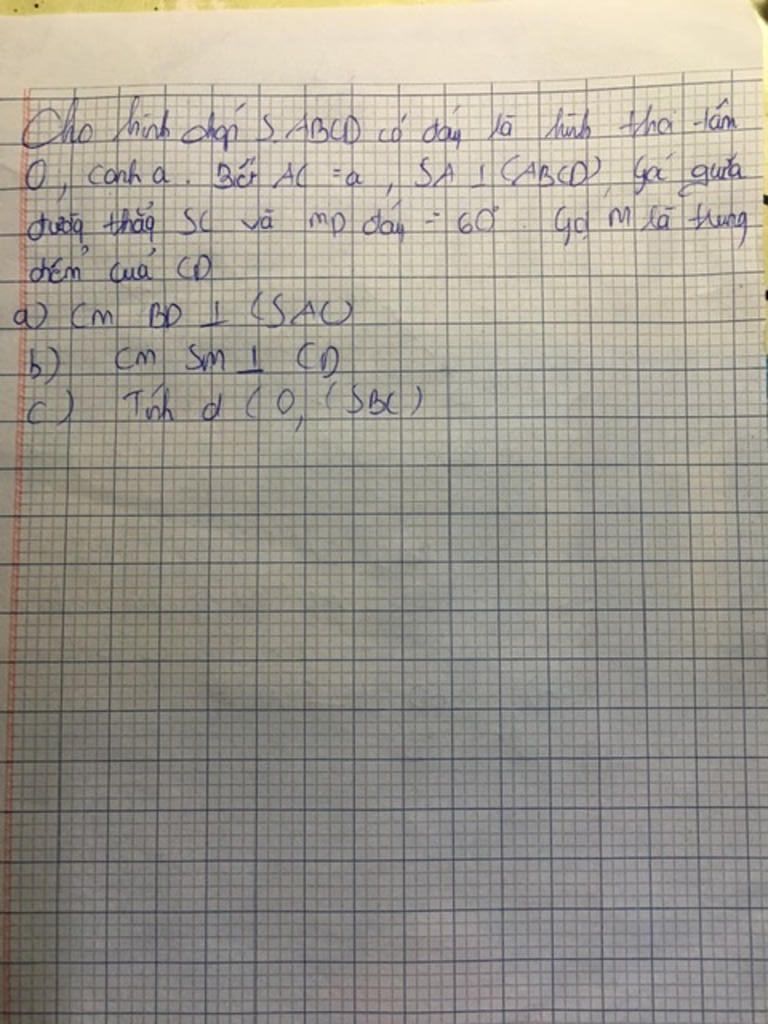 Cho hình chóp S.ABCD có đáy là hình thoi tâm
O, cạnh a. Biết AC = a, SA ⊥ (ABCD) Góc giữa
đường thẳng SC và mp đáy = 60°. Gọi M là trung
điểm của CD
a) Cm BD ⊥ (SAC)
b) Cm SM ⊥ CD
c) Tính d (O, (SBC)